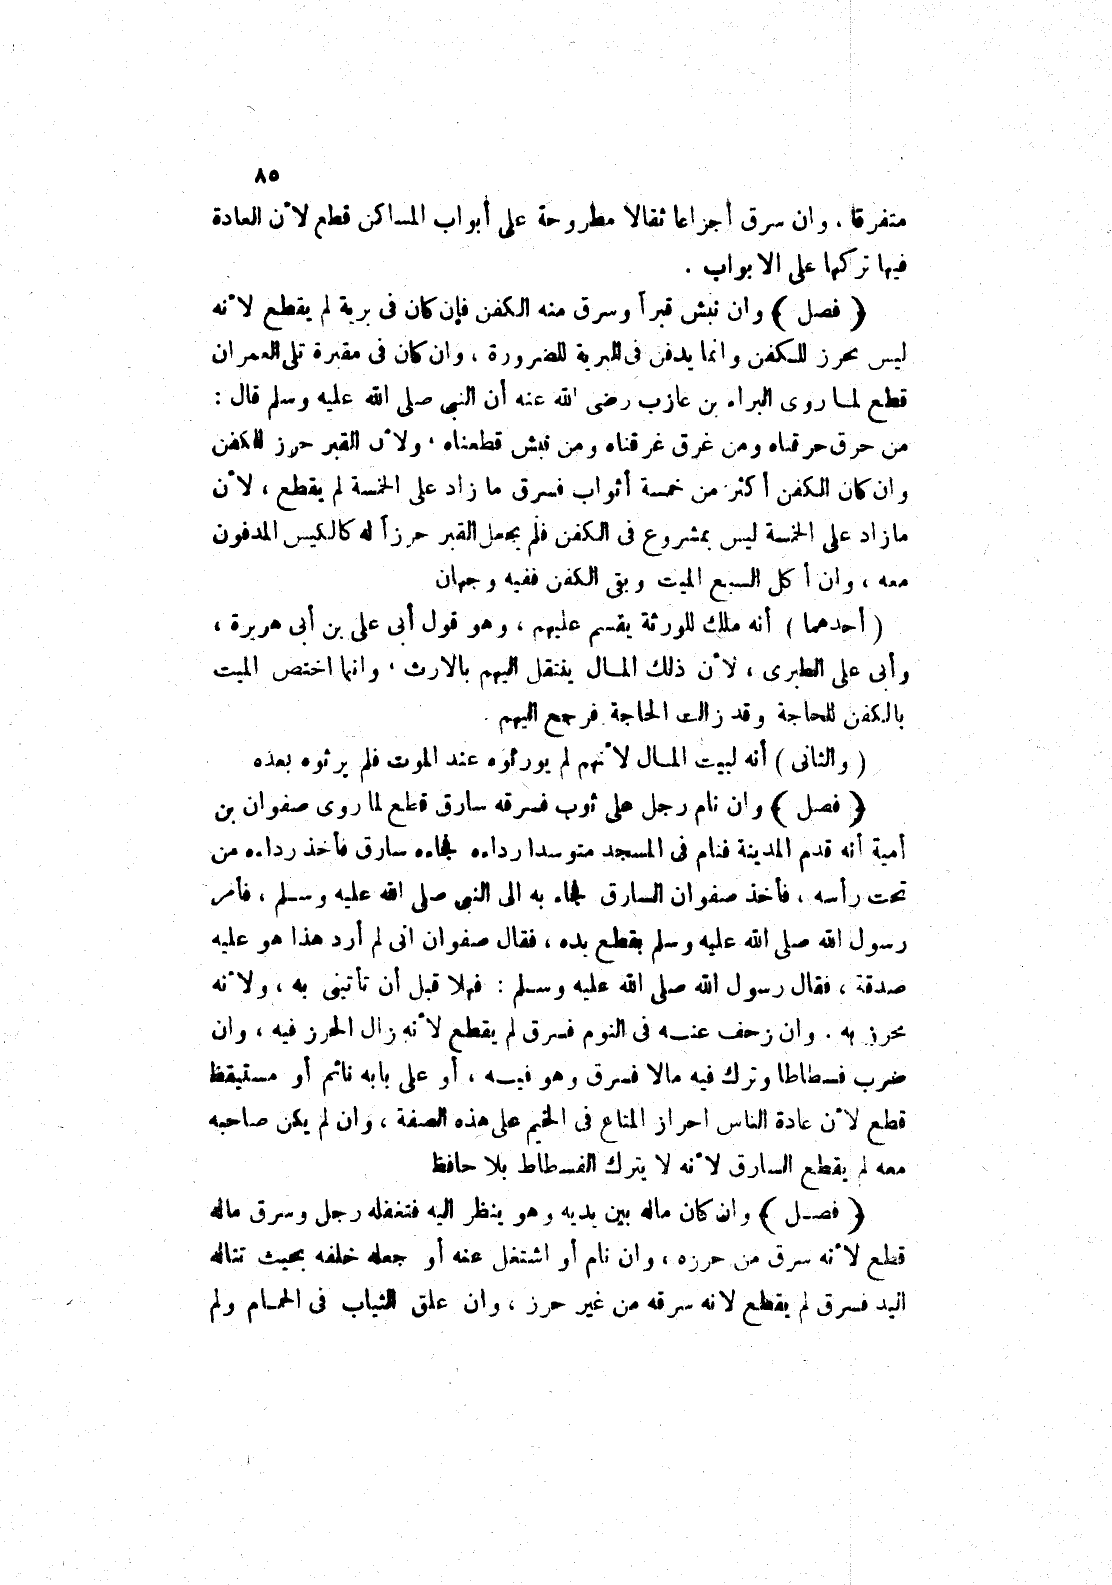 ٨٥
متفرقا ، وان سرق أجزاعا ثقالا مطروحة على أبواب المساكن قطع لأن العادة
فيها تركها على الابواب .
( فصل ) وان نبش قبراً وسرق منه الكفن فإن كان فى برية لم يقطع لأنه
ليس بحرز للكفن وانما يدفن فى البرية للضرورة ، وان كان فى مقبرة تلى العمران
قطع لما روى البراء بن عازب رضى الله عنه أن النبى صلى الله عليه وسلم قال :
من حرق حرقناه ومن غرق غرقناه ومن نبش قطعناه ، ولأن القبر حرز للكفن
وان كان الكفن أكثر من خمسة أثواب فسرق ما زاد على الخمسة لم يقطع ، لأن
مازاد على الخمسة ليس بمشروع فى الكفن فلم يجعل القبر حرزاً له كالكيس المدفون
معه ، وان أكل السبع الميت وبقى الكفن ففيه وجهان
( أحدهما ) أنه ملك للورثة يقسم عليهم ، وهو قول أبى على بن أبى هريرة ،
وأبى على الطبرى ، لأن ذلك المال ينتقل اليهم بالارث ، وانما اختص الميت
بالكفن للحاجة وقد زالت الحاجة فرجع اليهم .
( والثانى ) أنه لبيت المال لأنهم لم يورثوه عند الموت فلم يرثوه بعده
( فصل ) وان نام رجل على ثوب فسرقه سارق قطع لما روى صفوان بن
أمية أنه قدم المدينة فنام فى المسجد متوسدا رداءه فجاءه سارق فأخذ رداءه من
تحت رأسه ، فأخذ صفوان السارق فجاء به الى النبى صلى الله عليه وسلم ، فأمر
رسول الله صلى الله عليه وسلم بقطع يده ، فقال صفوان انى لم أرد هذا هو عليه
صدقة ، فقال رسول الله صلى الله عليه وسلم : فهلا قبل أن تأتينى به ، ولأنه
محرز به . وان زحف عنه فى النوم فسرق لم يقطع لأنه زال الحرز فيه ، وان
ضرب فسطاطا وترك فيه مالا فسرق وهو فيه ، أو على بابه نائم أو مستيقظ
قطع لأن عادة الناس احراز المتاع فى الخيم على هذه الصفة ، وان لم يكن صاحبه
معه لم يقطع السارق لأنه لا يترك الفسطاط بلا حافظ
( فصل ) وان كان ماله بين يديه وهو ينظر اليه فتغفله رجل وسرق ماله
قطع لأنه سرق من حرزه ، وان نام أو اشتغل عنه أو جعله خلفه بحيث تناله
اليد فسرق لم يقطع لانه سرقه من غير حرز ، وان علق الثياب فى الحمام ولم